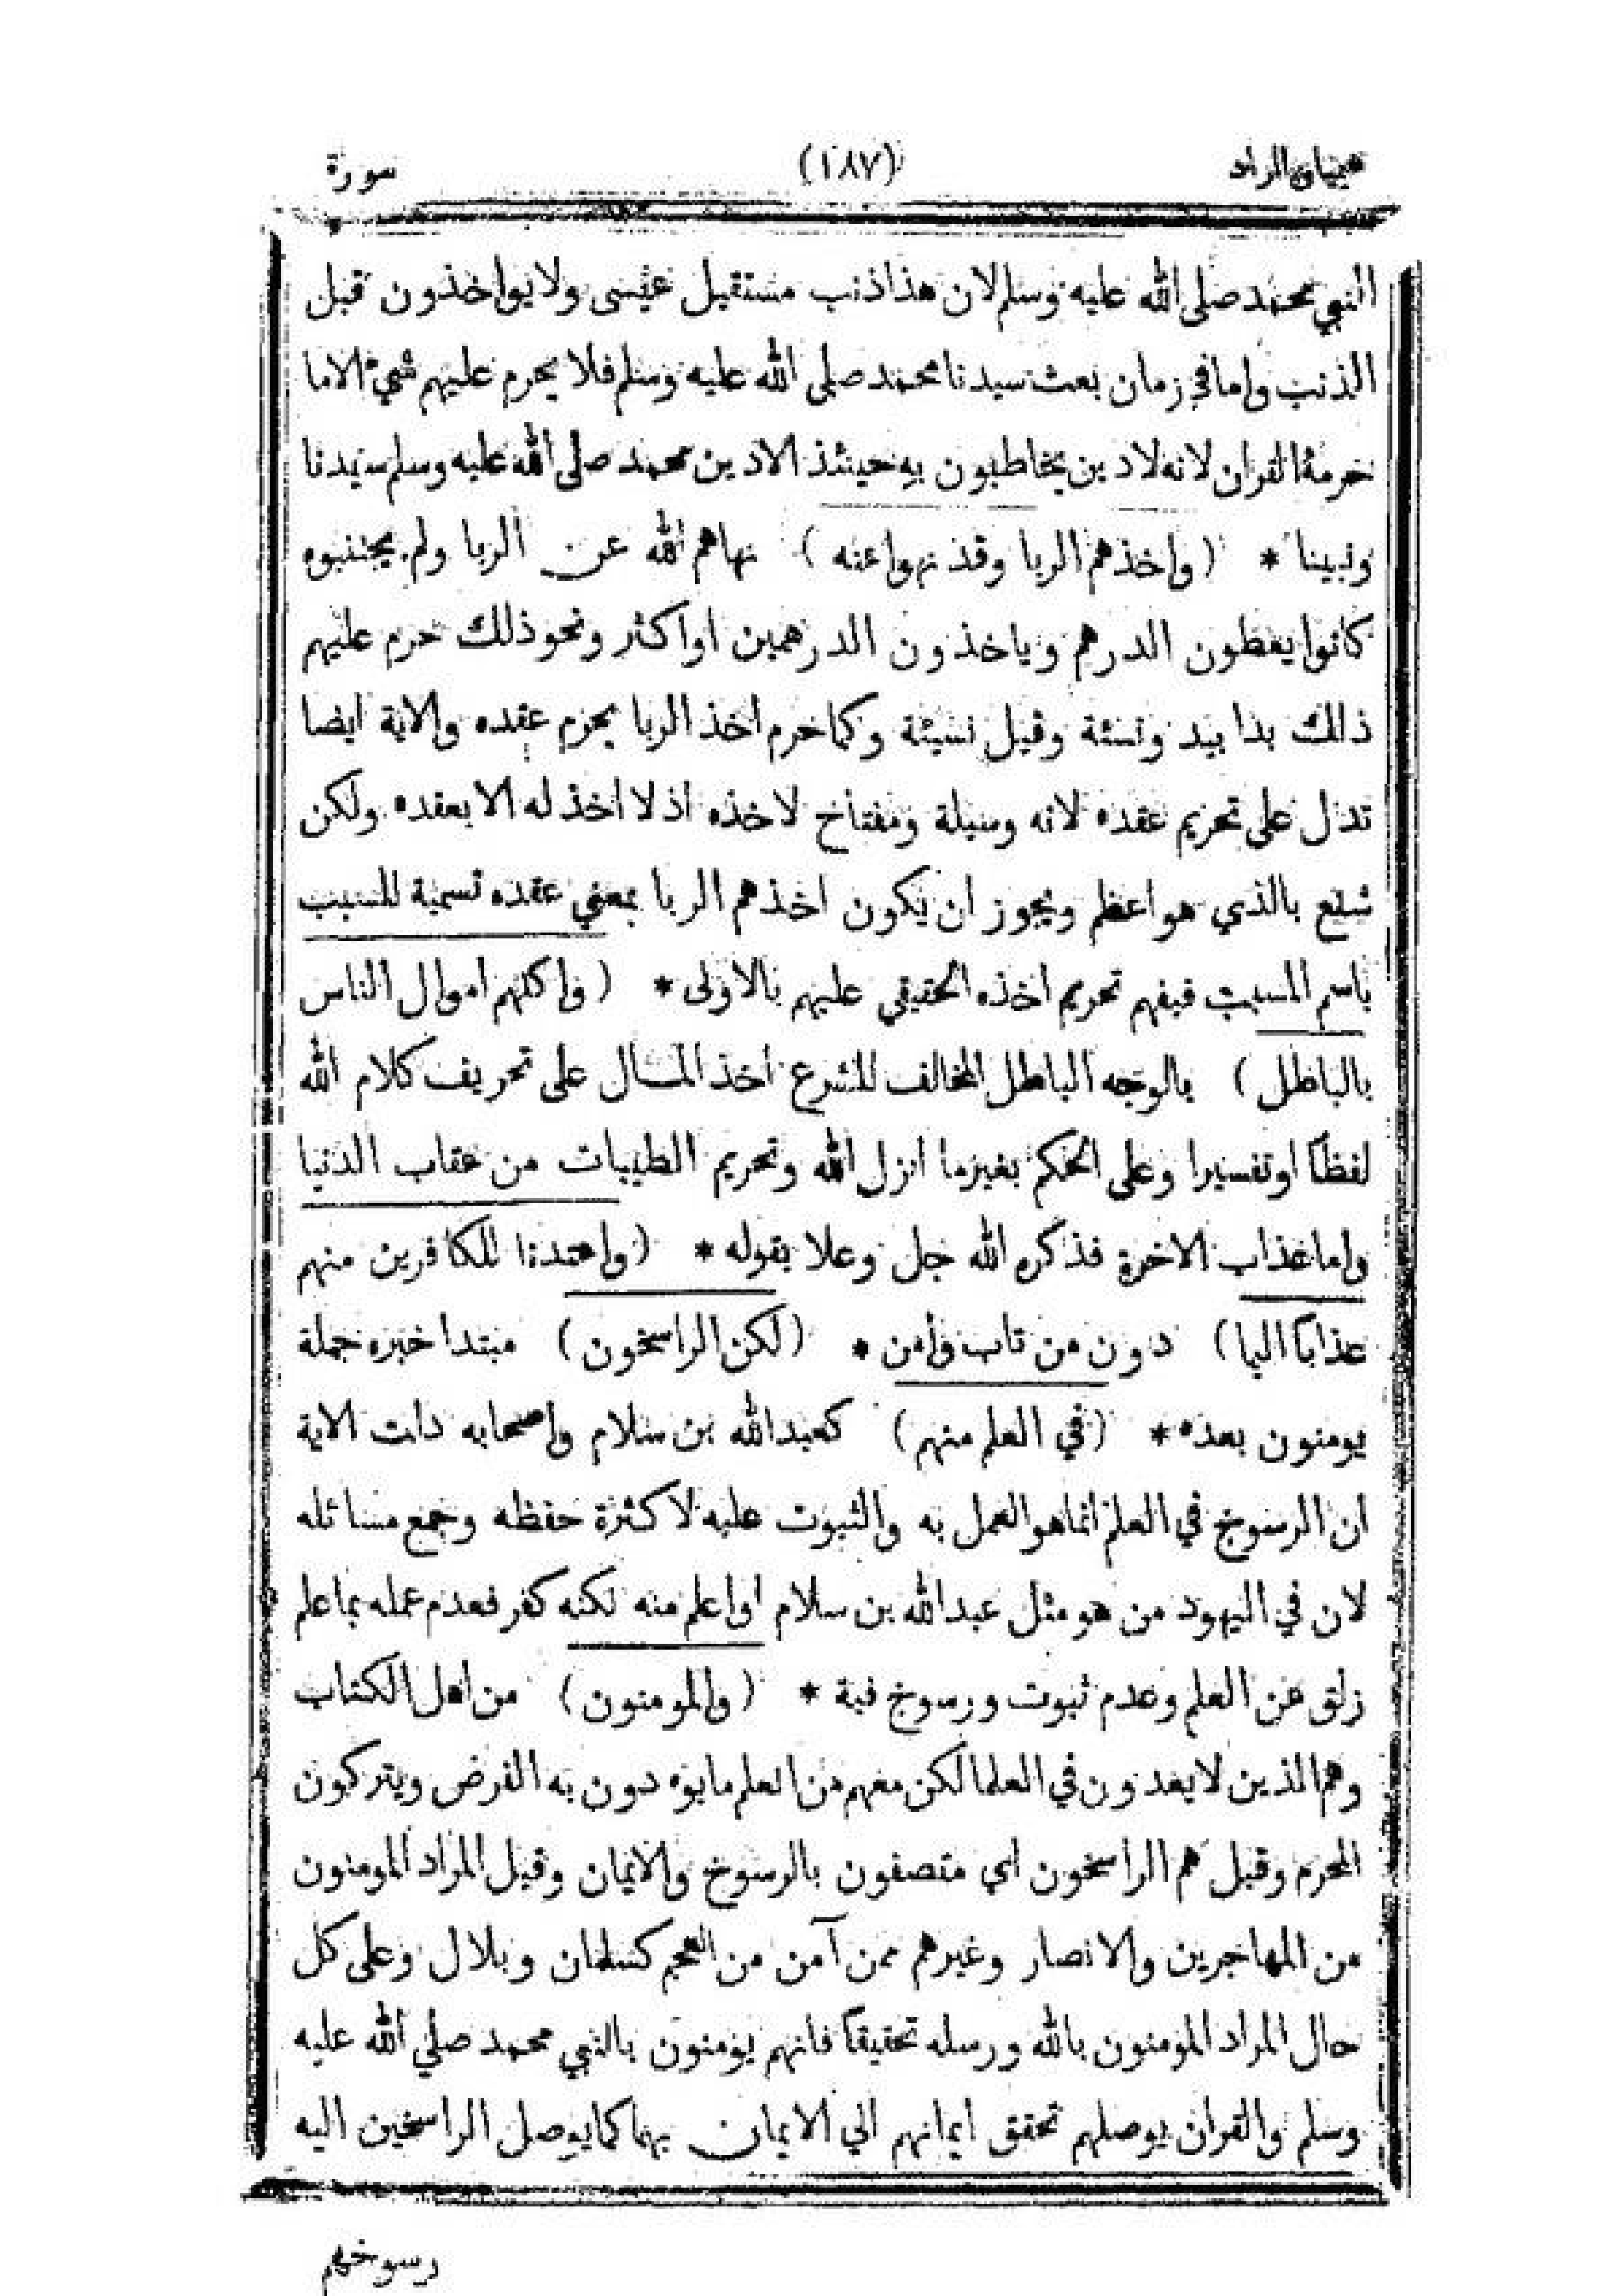 هميان الزاد (١٨٧) سورة
النبي محمد صلى الله عليه وسلم لان هذا ذنب مستقبل عيسى ولا يواخذون قبل
الذنب واما في زمان بعث سيدنا محمد صلى الله عليه وسلم فلا يحرم عليهم شيء الا ما
حرمه القران لانه لا دين يخاطبون به حينئذ الا دين محمد صلى الله عليه وسلم سيدنا
ونبينا * (واخذهم الربا وقد نهوا عنه) نهاهم الله عن الربا ولم يجتنبوه
كانوا يعطون الدرهم وياخذون الدرهمين او اكثر ونحو ذلك حرم عليهم
ذلك بدا بيد ونسئة وقيل نسيئة وكما حرم اخذ الربا يحرم عقده والاية ايضا
تدل على تحريم عقده لانه وسيلة ومفتاح لاخذه اذ لا اخذ له الا بعقده ولكن
شنع بالذي هو اعظم ويجوز ان يكون اخذهم الربا بمعني عقده تسمية للسبب
باسم المسبب فيفهم تحريم اخذه الحقيقي عليهم بالاولى * (واكلهم اموال الناس
بالباطل) بالوجه الباطل المخالف للشرع اخذ المال على تحريف كلام الله
لفظا او تفسيرا وعلى الحكم بغير ما انزل الله وتحريم الطيبات من عقاب الدنيا
واما عذاب الاخرة فذكره الله جل وعلا بقوله * (واعتدنا للكافرين منهم
عذابا اليما) دون من تاب وامن * (لكن الراسخون) مبتدا خبره جملة
يومنون بعده * (في العلم منهم) كعبد الله بن سلام واصحابه دلت الاية
ان الرسوخ في العلم انما هو العمل به والثبوت عليه لا كثرة حفظه وجمع مسائله
لان في اليهود من هو مثل عبد الله بن سلام او اعلم منه لكنه كفر فعدم عمله بما علم
زلق عن العلم وعدم ثبوت ورسوخ فيه * (والمومنون) من اهل الكتاب
وهم الذين لا يعدون في العلما لكن معهم من العلم ما يؤدون به الفرض ويتركون
المحرم وقيل هم الراسخون اي متصفون بالرسوخ والايمان وقيل المراد المومنون
من المهاجرين والانصار وغيرهم ممن آمن من العجم كسلمان وبلال وعلى كل
حال المراد المومنون بالله ورسله تحقيقا فانهم يومنون بالنبي محمد صلي الله عليه
وسلم والقران يوصلهم تحقق ايمانهم الي الايمان بهما كما يوصل الراسخين اليه
رسوخهم